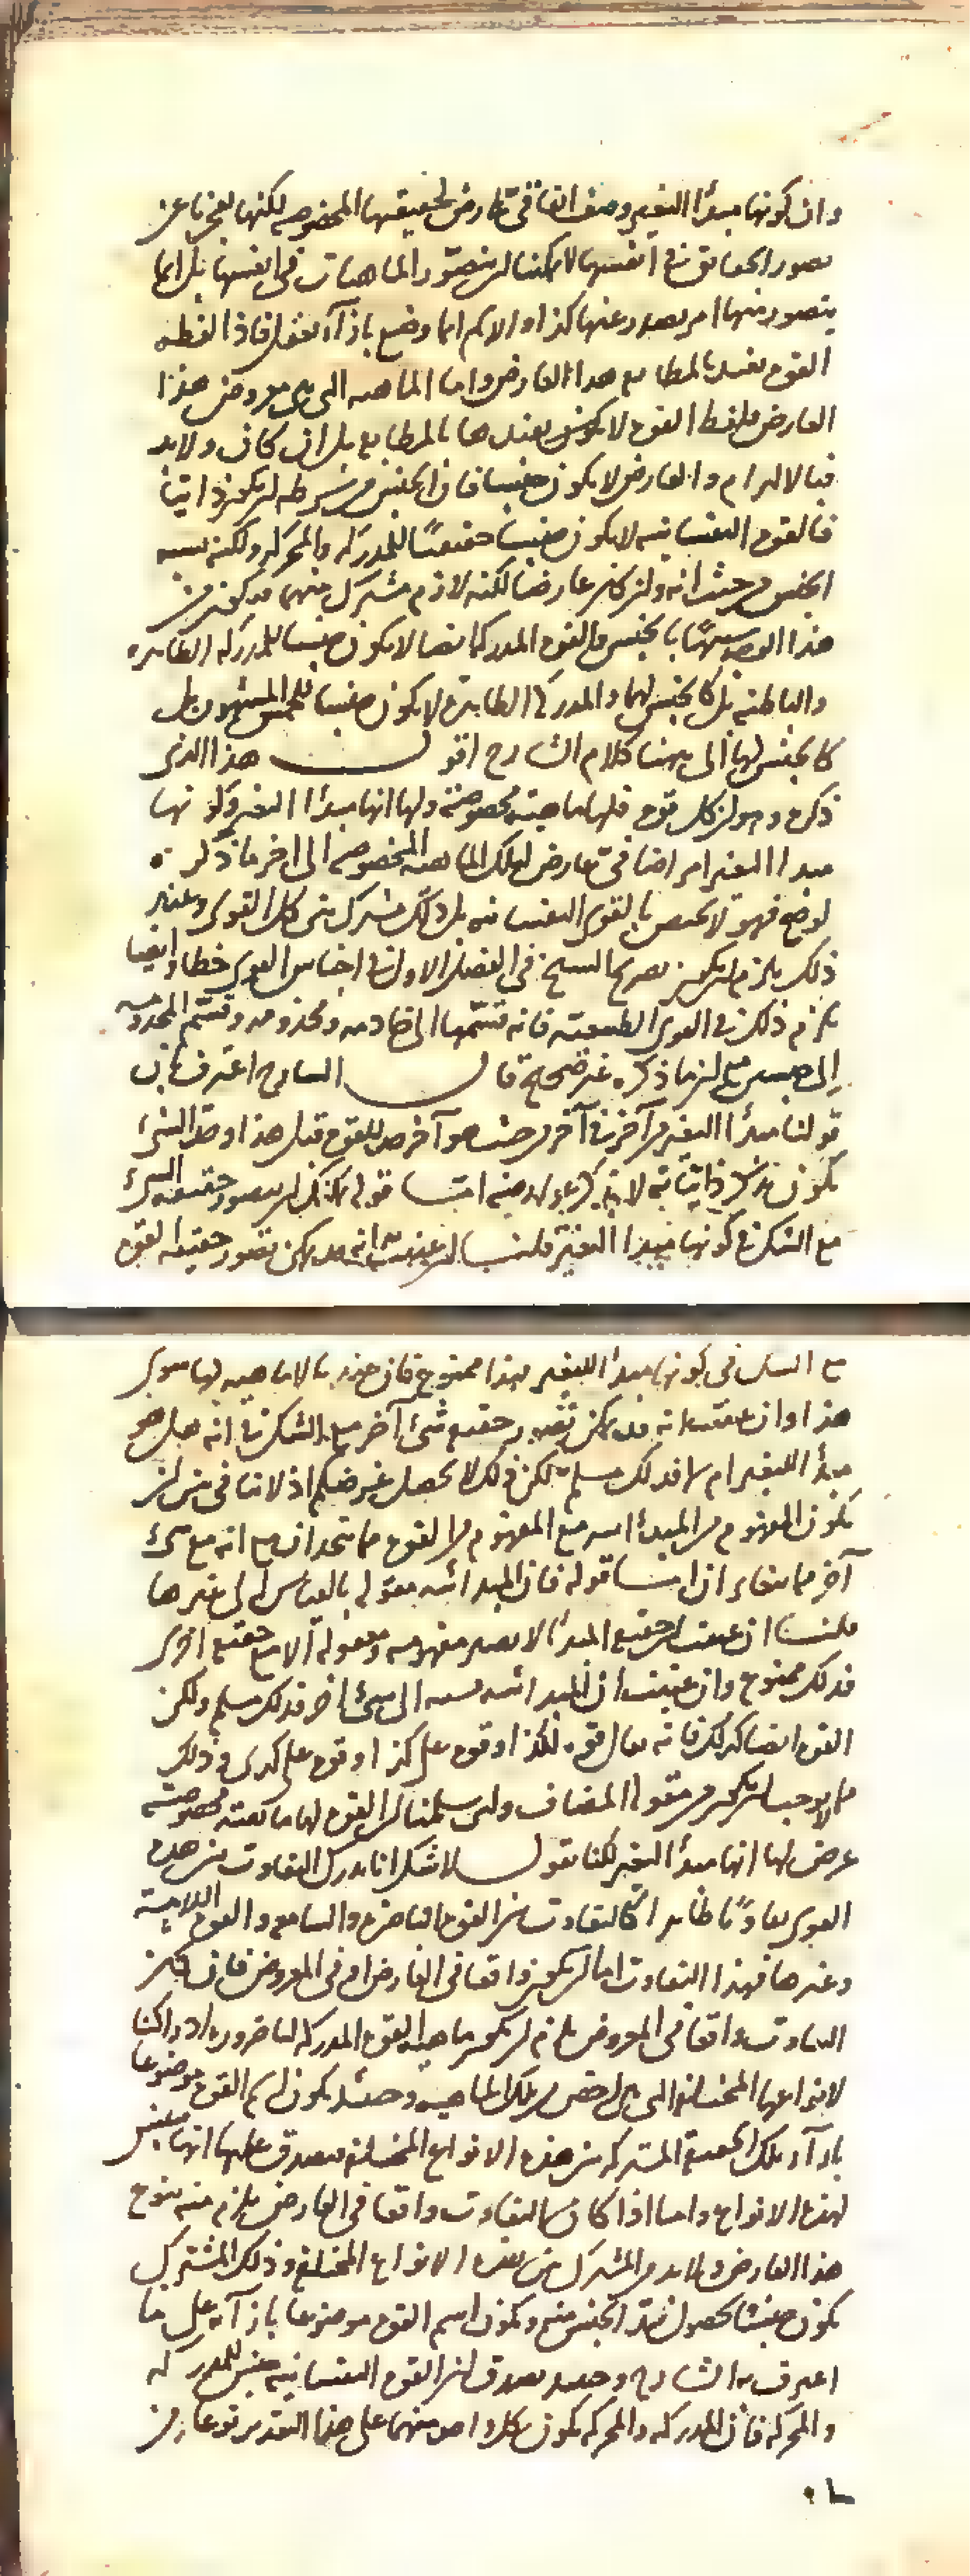 وان كونها مبدأ التغير وصف اضافى عارض لحقيقتها المخصوصه لكنها لعجزنا عن
تصور الحقائق فى انفسها لا يمكننا ان نتصور الماهيات فى انفسها بل انما
يتصور منها امر يصدر عنها كذا والاسم انما وضع بازآء المعقول فاذا لفظه
القوه تفيد بالمطابقه هذا العارض واما الماهيه التى هى معروض هذا
العارض فلفظ القوه لا يكون يفيدها بالمطابقه بل ان كان ولابد
فبالالتزام والعارض لا يكون جنسا فان الجنس من شرطه ان يكون ذاتيا
فالقوه النفسانيه لا يكون جنسا حقيقيًا للمدركه والمحركه ولكنه يشبه
الجنس من حيث انه وان كان عارضا لكنه لازم مشترك بينهما فيكون من
هذا الوجه شبيهًا بالجنس والقوه المدركه ايضا لا يكون جنسا للمدركه الظاهره
والباطنه بل كالجنس لهما والمدركه الظاهره لا يكون جنسا للخمس المشهوره بل
كالجنس لها الى ههنا كلام الشارح اقول هذا الذى
ذكره وهو ان كل قوه فلها ماهيه مخصوصه ولها انها مبدأ التغير وكونها
مبدأ التغير امر اضافى عارض لتلك الماهيه المخصوصه الى اخر ما ذكر
لو صح فهو لا يختص بالقوى النفسانيه بل ذلك مشترك بين كل القوى وعند
ذلك يلزم ان يكون تصريح الشيخ فى الفصل الاول فى اجناس القوى خطأ وايضا
يلزم ذلك فى القوى الطبيعيه فانه قسّمها الى خادمه ومخدومه وقسّم المخدومه
الى جنسين مع ان ما ذكره غير صحيح قال الشارح اعترف بان
قولنا مبدأ التغير من آخر فى آخر من حيث هو آخر حد للقوه قبل هذا وحد الشئ
يكون بذكر ذاتياته لا بذكر عوارضه اما قوله يمكنك ان تتصور حقيقه الشئ
مع الشك فى كونها مبدأ التغير قلنا ان عنيت انه يمكن تصور حقيقه القوه
مع الشك فى كونها مبدأ للتغير فهذا ممنوع فان عندنا لا ماهيه لها سوى
هذا وان عنيت انه قد يمكن تصور حقيقه شئ آخر مع الشك فى انه هل هو
مبدأ للتغير ام لا فذلك مسلم لكن ذلك لا يحصل غرضكم اذ لا تنافى بين ان
يكون المفهوم من المبدأيه مع المفهوم من القوه مما يتحدان مع انه مع شئ
آخر مما يتغايران اما قوله فان المبدائيه مقوله بالقياس الى غيرها
قلنا ان عنيت ان حقيقه المبدأ لا يصير مفهومه ومعقوله الا مع حقيقه اخرى
فذلك ممنوع وان عنيت ان المبدائيه نسبه الى شئ اخر فذلك مسلم ولكن
القوه ايضا كذلك فانه يقال قوه لكذا وقوه على كذا وقوه على كذى وذلك
مما لا يوجب ان يكون من مقوله المضاف ولئن سلمنا ان القوه لها ماهيه مخصوصه
عرض لها انها مبدأ التغير لكنا نقول لا شك انا ندرك التفاوت بين هذه
القوى تفاوتًا ظاهرا كالتفاوت بين القوه الباصره والسامعه والقوه اللامسه
وغيرها فهذا التفاوت اما ان يكون واقعا فى العارض ام فى المعروض فان يكن
التفاوت واقعا فى المعروض يلزم ان يكون ماهيه القوه المدركه لنا ضروره ادراكنا
لانواعها المختلفه التى هى اخص من تلك الماهيه وحينئذ يكون اسم القوه موضوعا
بازآء تلك الحقيقه المشتركه بين هذه الانواع المختلفه فيصدق عليها انها جنس
لهذه الانواع واما اذا كان التفاوت واقعا فى العارض يلزم منه تنوع
هذا العارض ولابد من المشترك بين هذه الانواع المختلفه وذلك المشترك
يكون جنسًا لحصول حد الجنس فيه ويكون اسم القوه موضوعا بازآئه على ما
اعترف به الشارح وحينئذ يصدق ان القوه النفسانيه جنس للمدركه
والمحركه فان المدركه والمحركه يكون كل واحد منهما على هذا التقدير نوعا من